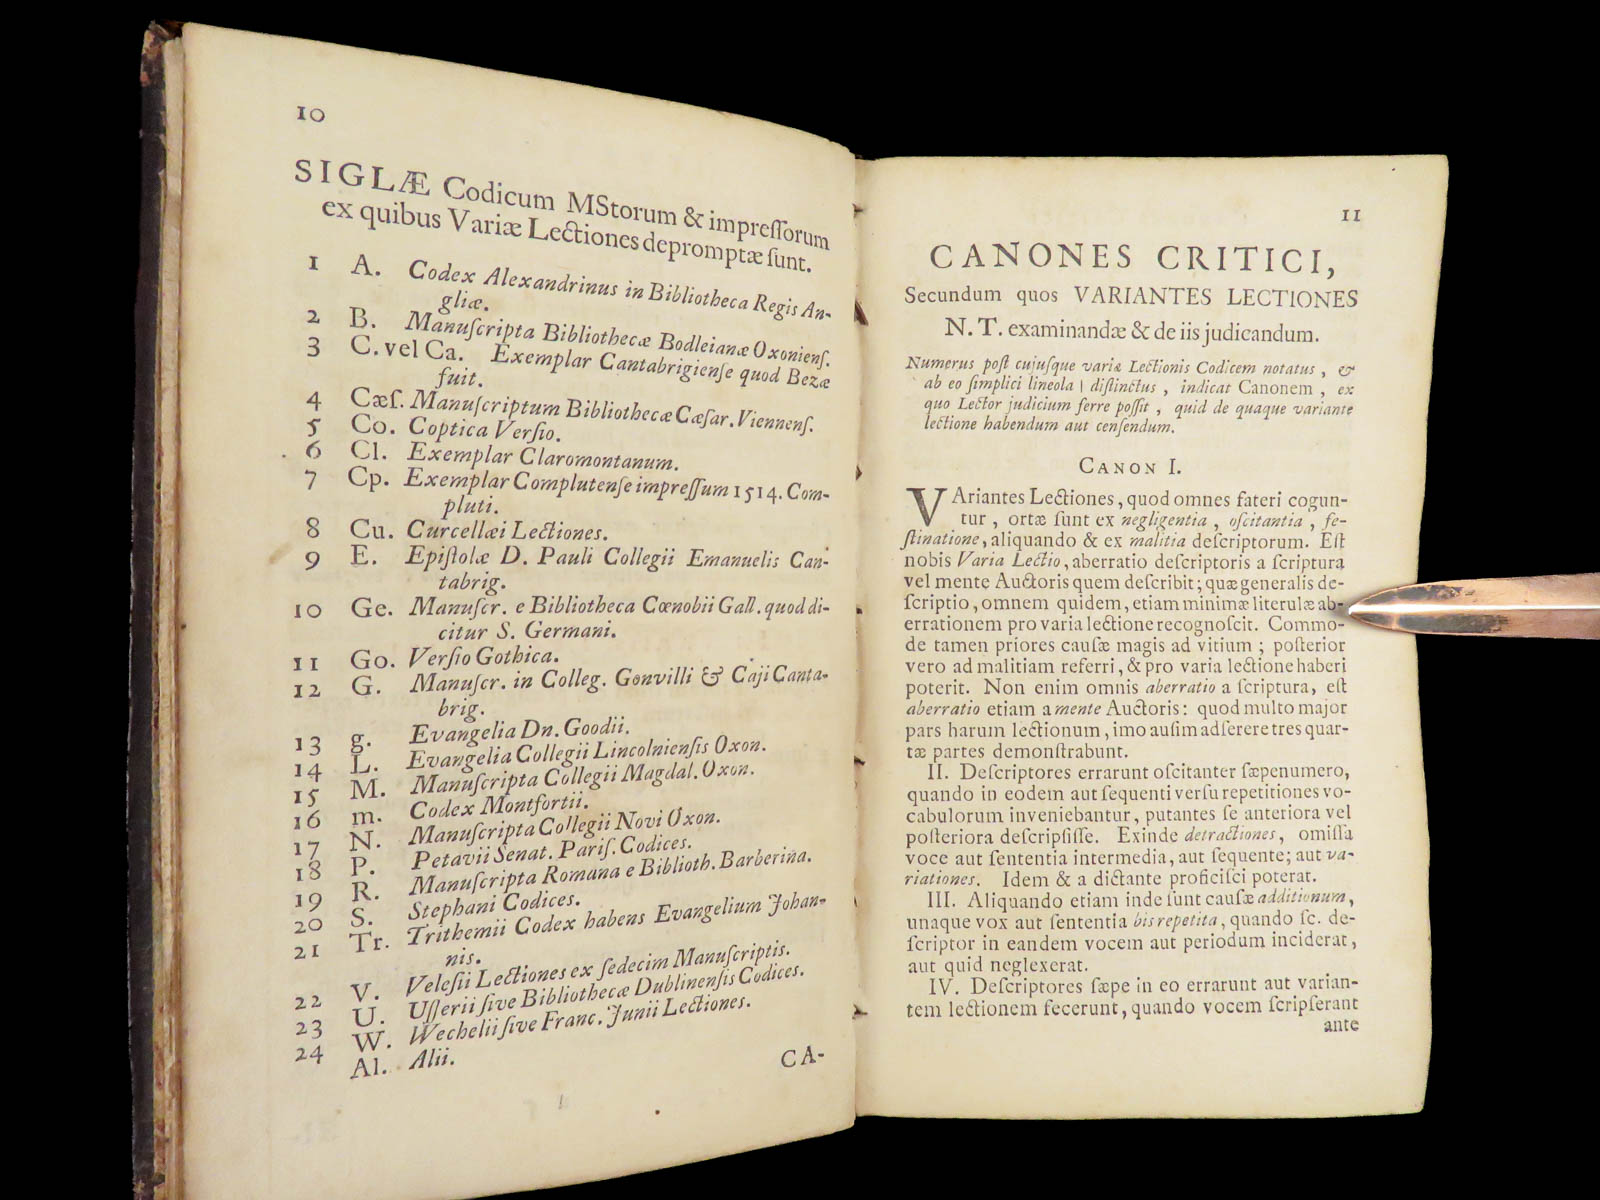 10
SIGLÆ Codicum MStorum & impreſſorum
ex quibus Variæ Lectiones depromptæ ſunt.
1 A. Codex Alexandrinus in Bibliotheca Regis An-
gliæ.
2 B. Manuſcripta Bibliothecæ Bodleianæ Oxonienſ.
3 C. vel Ca. Exemplar Cantabrigienſe quod Bezæ
fuit.
4 Cæſ. Manuſcriptum Bibliothecæ Cæſar. Viennenſ.
5 Co. Coptica Verſio.
6 Cl. Exemplar Claromontanum.
7 Cp. Exemplar Complutenſe impreſſum 1514. Com-
pluti.
8 Cu. Curcellæi Lectiones.
9 E. Epiſtolæ D. Pauli Collegii Emanuelis Can-
tabrig.
10 Ge. Manuſcr. e Bibliotheca Cœnobii Gall. quod di-
citur S. Germani.
11 Go. Verſio Gothica.
12 G. Manuſcr. in Colleg. Gonvilli & Caji Canta-
brig.
13 g. Evangelia Dn. Goodii.
14 L. Evangelia Collegii Lincolnienſis Oxon.
15 M. Manuſcripta Collegii Magdal. Oxon.
16 m. Codex Montfortii.
17 N. Manuſcripta Collegii Novi Oxon.
18 P. Petavii Senat. Pariſ. Codices.
19 R. Manuſcripta Romana e Biblioth. Barberina.
20 S. Stephani Codices.
21 Tr. Trithemii Codex habens Evangelium Johan-
nis.
22 V. Veleſii Lectiones ex ſedecim Manuſcriptis.
23 U. Uſſerii ſive Bibliothecæ Dublinenſis Codices.
24 W. Wechelii ſive Franc. Junii Lectiones.
Al. Alii.
CA-
11
CANONES CRITICI,
Secundum quos VARIANTES LECTIONES
N. T. examinandæ & de iis judicandum.
Numerus poſt cujuſque variæ Lectionis Codicem notatus, &
ab eo ſimplici lineola | diſtinctus, indicat Canonem, ex
quo Lector judicium ferre poſſit, quid de quaque variante
lectione habendum aut cenſendum.
CANON I.
VAriantes Lectiones, quod omnes fateri cogun-
tur, ortæ ſunt ex negligentia, oſcitantia, fe-
ſtinatione, aliquando & ex malitia deſcriptorum. Eſt
nobis Varia Lectio, aberratio deſcriptoris a ſcriptura
vel mente Auctoris quem deſcribit; quæ generalis de-
ſcriptio, omnem quidem, etiam minimæ literulæ ab-
errationem pro varia lectione recognoſcit. Commo-
de tamen priores cauſæ magis ad vitium; poſterior
vero ad malitiam referri, & pro varia lectione haberi
poterit. Non enim omnis aberratio a ſcriptura, eſt
aberratio etiam a mente Auctoris: quod multo major
pars harum lectionum, imo auſim adſerere tres quar-
tæ partes demonſtrabunt.
II. Deſcriptores errarunt oſcitanter ſæpenumero,
quando in eodem aut ſequenti verſu repetitiones vo-
cabulorum inveniebantur, putantes ſe anteriora vel
poſteriora deſcripſiſſe. Exinde detractiones, omiſſa
voce aut ſententia intermedia, aut ſequente; aut va-
riationes. Idem & a dictante proficiſci poterat.
III. Aliquando etiam inde ſunt cauſæ additionum,
unaque vox aut ſententia bis repetita, quando ſc. de-
ſcriptor in eandem vocem aut periodum inciderat,
aut quid neglexerat.
IV. Deſcriptores ſæpe in eo errarunt aut varian-
tem lectionem fecerunt, quando vocem ſcripſerant
ante